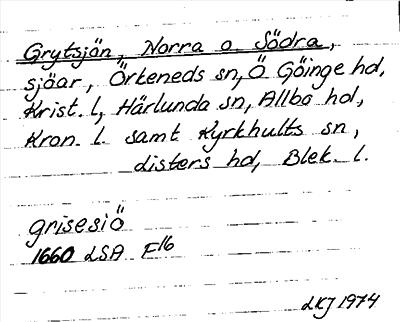 Grytsjön, Norra o. Södra,
sjöar, Örkeneds sn, Ö Göinge hd,
Krist. l, Härlunda sn, Allbo hd,
Kron. l. samt Kyrkhults sn,
Listers hd, Blek. l.
grisesiö
1660 LSA F16
LKJ 1974